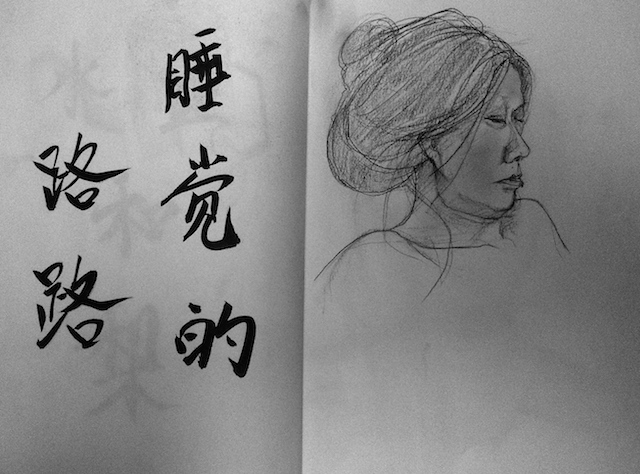 睡觉的
路路